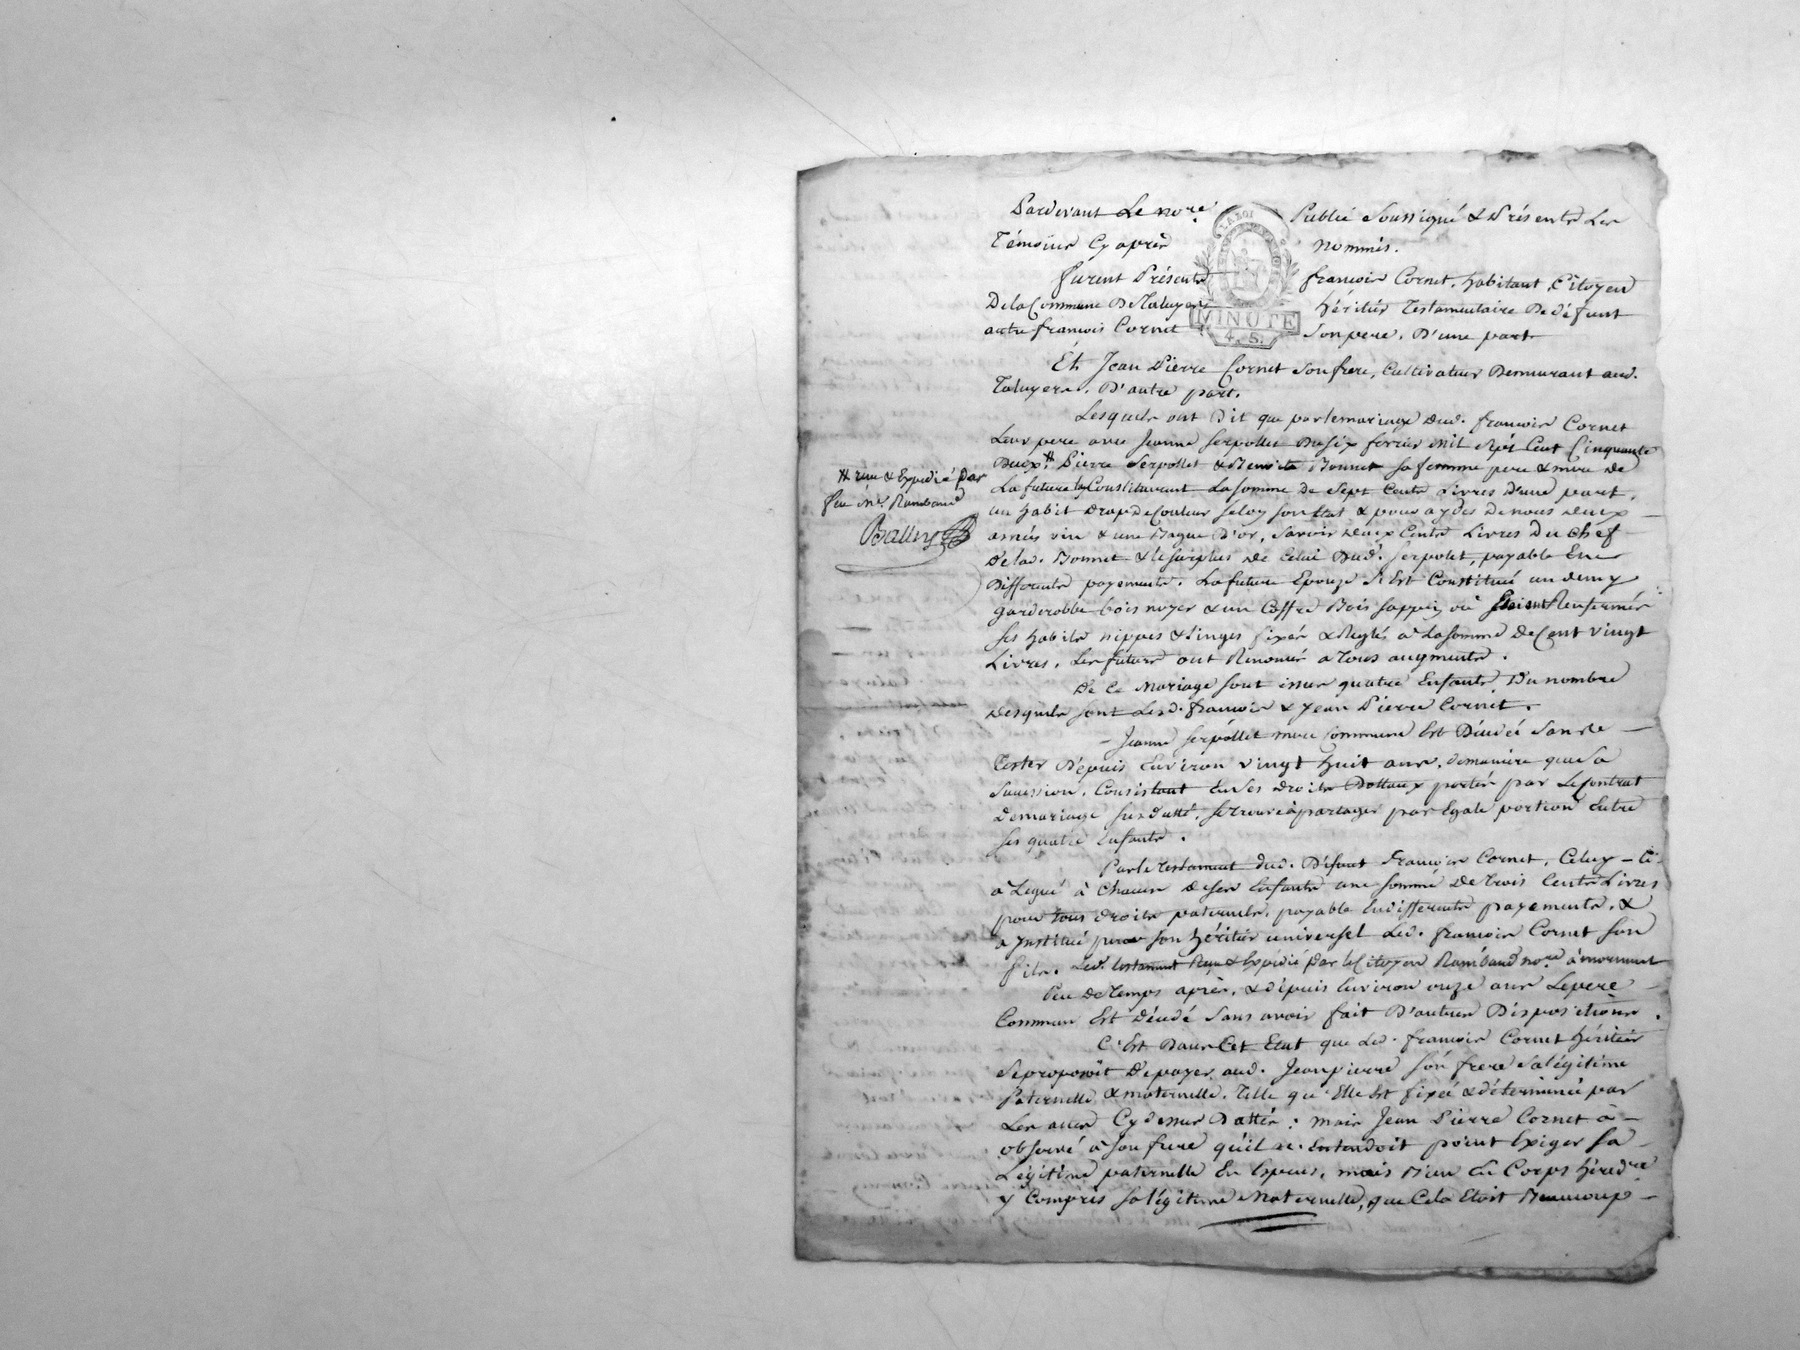 Pardevant Le no.re Public Soussigné & Présents Les
Témoins Cy après nommés.
furent Présents françois Cornet, habitant, Citoyen
De la Commune De Taluyers héritier Testamentaire De défunt
autre françois Cornet Son pere, D'une part
LA LOI
MINUTE
4. S.
Et Jean Pierre Cornet Son frere, Cultivateur Demeurant aud.
Taluyers, D'autre part.
Lesquels ont Dit que par le mariage dud. françois Cornet
Leur pere avec Jeanne Serpollet Du Six fevrier mil Sept Cent Cinquante
Deux # Pierre Serpollet & Benoite Bonnet sa femme pere & mere de
# reçu & Expedié Par
feu Me. Rambaud
La future luy Constituerent La Somme de Sept Cents Livres d'une part,
un habit Drap De Couleur Selon Son Etat & pour aydes De nous Deux
anées vin & une Bague D'or, Savoir Deux Cents Livres Du Chef
De lad. Bonnet & le Surplus De Celui Dud. Serpolet, payable En
Différents payements. La future Epouze S'est Constitué un demy
garderobbe bois noyer & un Coffre Bois Sappin où Etoient Renfermés
Ses habits nippes & Linges fixés & Reglés à La Somme De Cent Vingt
Livres. Les futurs ont Renoncés à Tous augments.
De Ce Mariage Sont issus quatre Enfants, Du nombre
Desquels Sont Lesd. françois & Jean Pierre Cornet.
Jeanne Serpollet mere Commune Est Décédée Sans
Tester Depuis Environ Vingt huit ans, de maniere que Sa
Succession, Consistant En Ses Droits Dottaux portés par Le Contrat
De mariage Susdatté, Se trouve à partager par Egale portion Entre
Ses quatre Enfants.
Par le Testament dud. Défunt françois Cornet, Celuy-Ci
a Légué à Chacun de Ses Enfants une Somme De Trois Cents Livres
pour tous Droits paternels, payable En différents payements, &
a Institué pour Son héritier universel Led. françois Cornet Son
fils. Led. Testament Reçu & Expédié Par le Citoyen Rambaud no.re à mornant
Peu De Temps après, & depuis Environ onze ans Le pere
Commun Est Décédé Sans avoir fait D'autres Dispositions.
C'est Dans Cet Etat que Led. françois Cornet héritier
Se proposoit De payer aud. Jean pierre Son frere Sa légitime
Paternelle & maternelle, Telle qu'Elle Est fixée & déterminée par
Les actes Cy dessus Dattés; mais Jean Pierre Cornet a
observé à Son frere qu'il n'Entendoit point Exiger Sa
Légitime paternelle En Especes, mais Bien En Corps héréd.re
y Compris Sa légitime Maternelle, que Cela Etoit Beaucoup